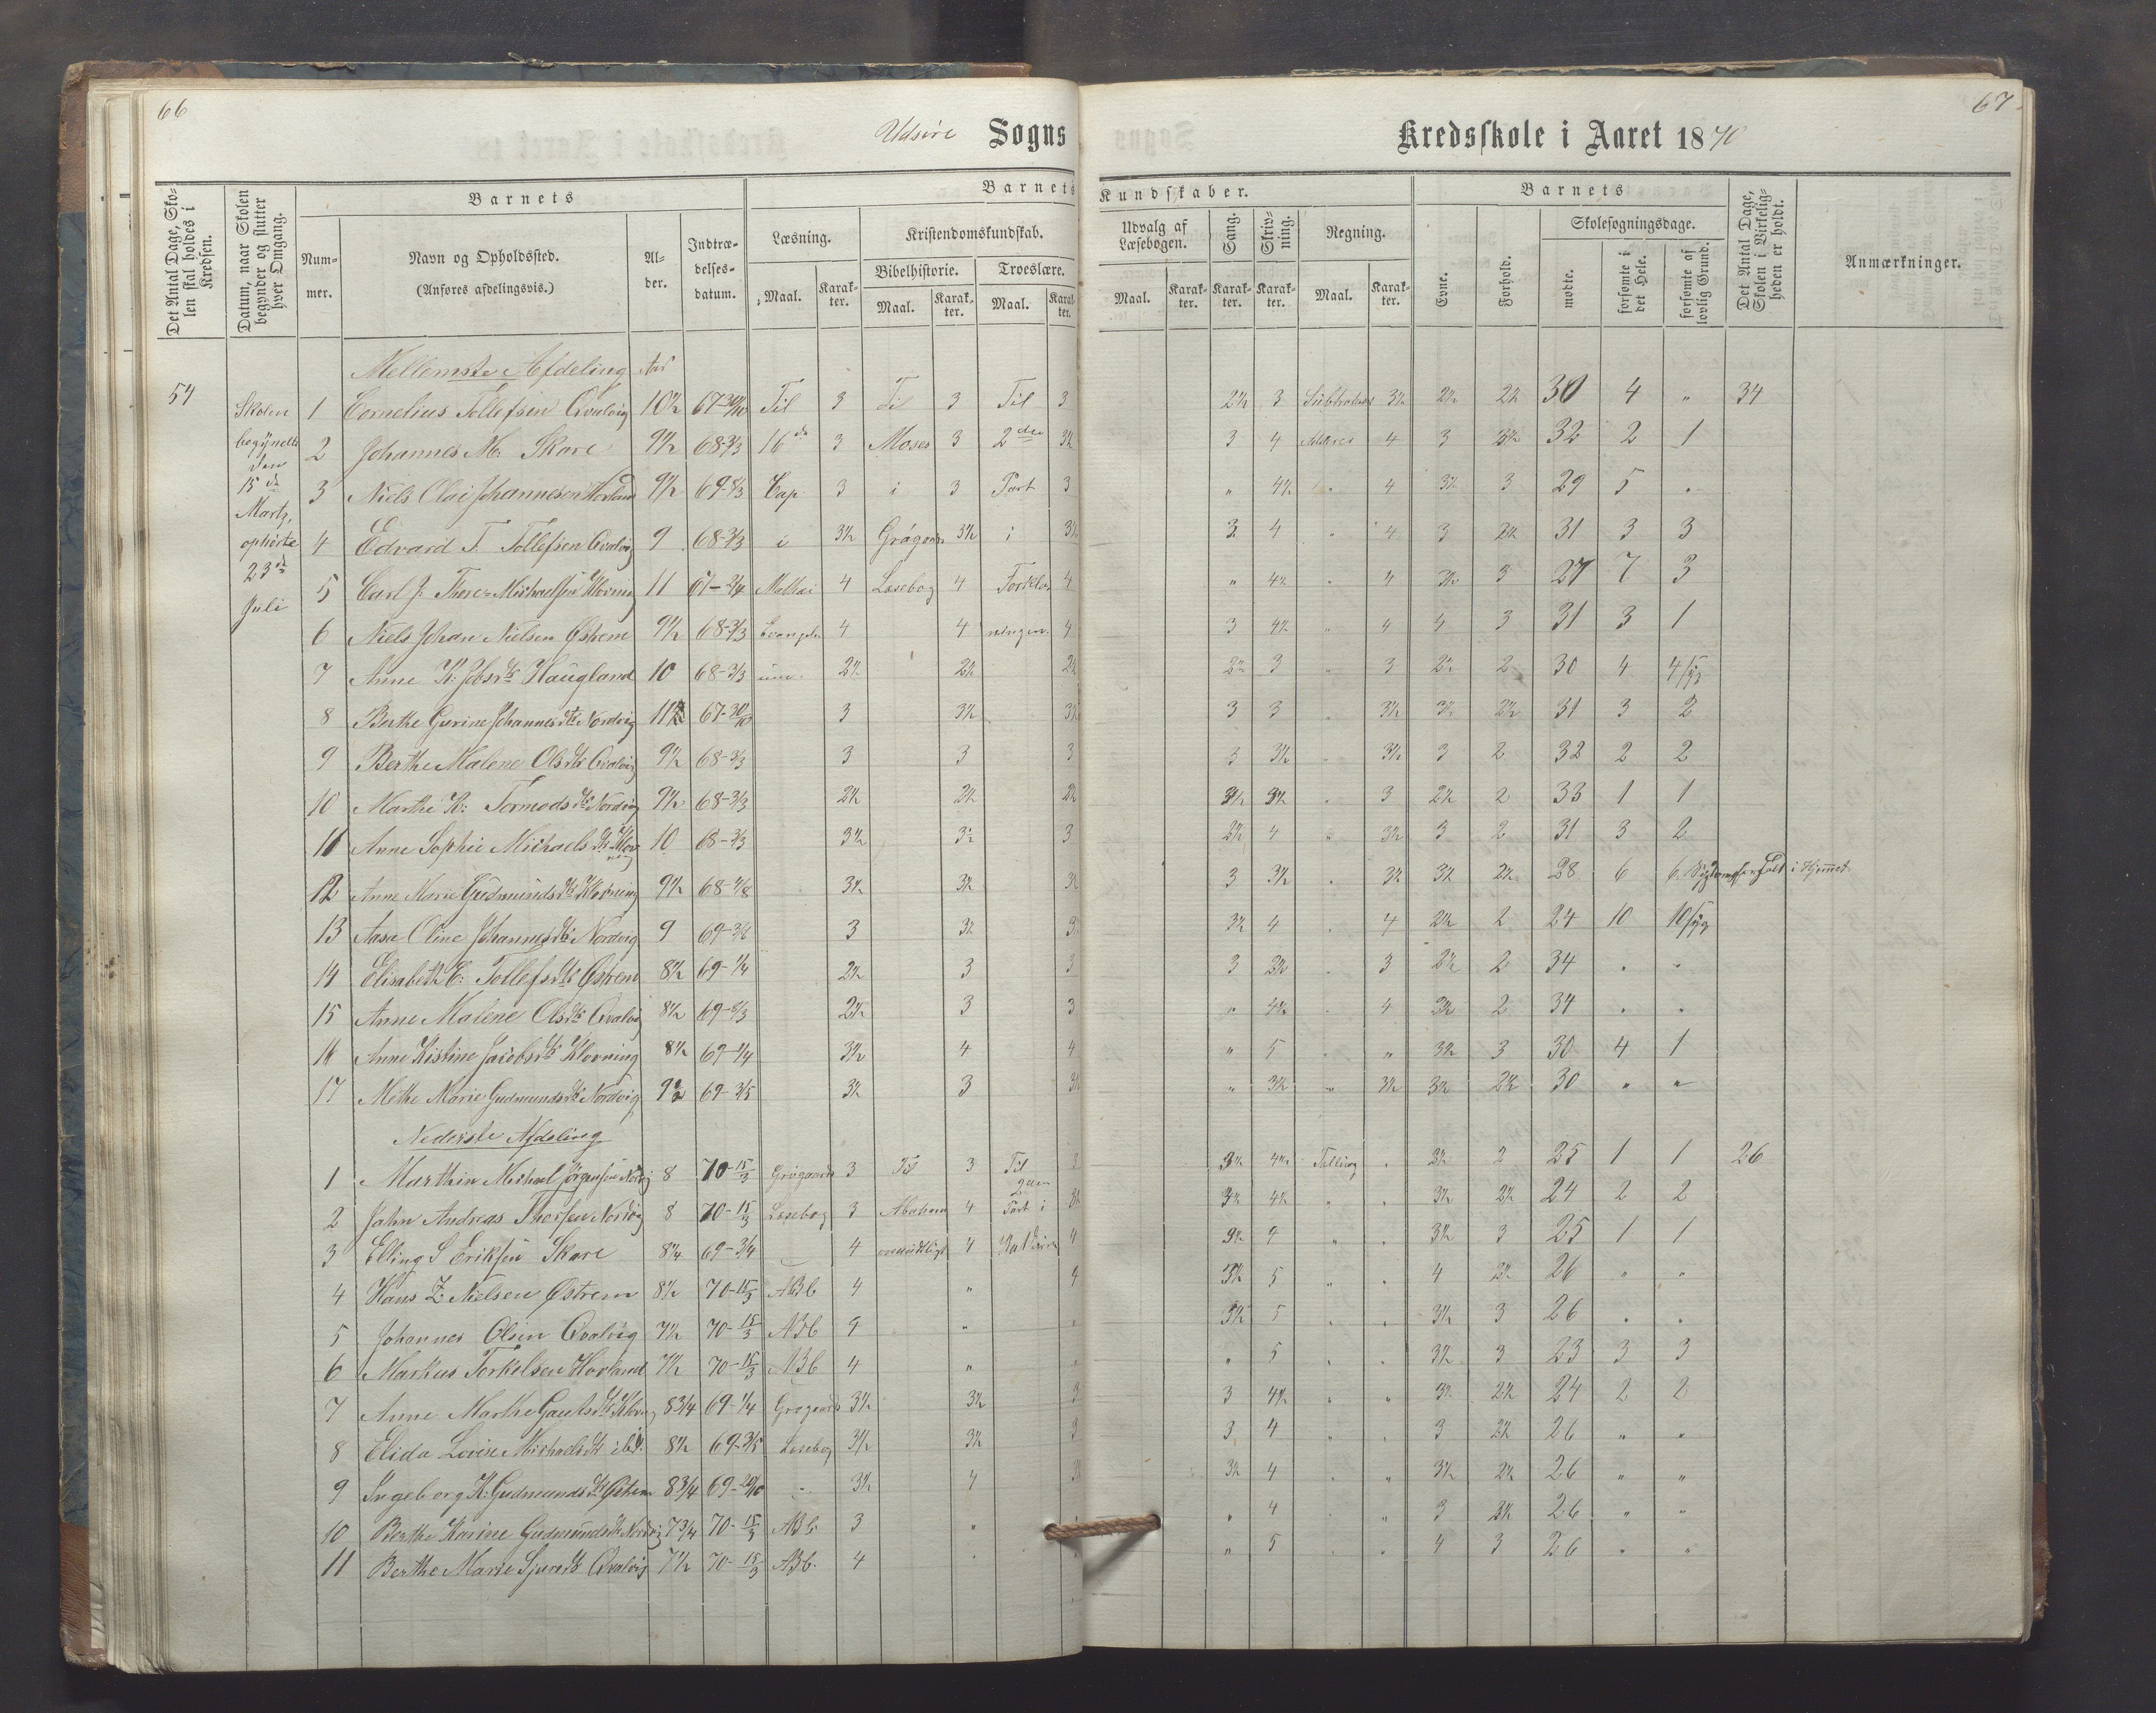 66
67
Udsire Sogns Kredsskole i Aaret 1870
Det Antal Dage, Skolen skal holdes i Kredsen.
Datum, naar Skolen begynder og slutter hver Omgang.
Barnets
Barnets Kundskaber.
Barnets
Det Antal Dage, Skolen i Virkeligheden er holdt.
Anmærkninger.
Nummer.
Navn og Opholdssted.
(Anføres afdelingsvis.)
Alder.
Indtrædelsesdatum.
Læsning.
Kristendomskundskab.
Bibelhistorie.
Troeslære.
Udvalg af Læsebogen.
Sang.
Skrivning.
Regning.
Evne.
Forhold.
Skolesøgningsdage.
mødte.
forsømte i det Hele.
forsømte af lovlig Grund.
Maal. Karakter. Maal. Karakter. Maal. Karakter. Maal. Karakter. Karakter. Karakter. Maal. Karakter.
Mellemste Afdeling Aar
54
Skolen
begyndte
den
15 de
Martz,
ophørte
23 de
Juli
1 Cornelius Tollefsen Qvalvig 10½ 67-30/10 Til 3 Til 3 Til 3 2½ 3 3½ 2½ 2½ 30 4 " 34
2 Johannes M. Skare 9½ 68-3/3 16 de 3 Moses 3 2 den 3½ 3 4 4 3 2½ 32 2 1
3 Niels Olai Johannesen Hovland 9½ 69-8/3 Cap. 3 i 3 Part 3 " 4½ " 4 3½ 3 29 5 "
4 Edvard T. Tollefsen Qvalvig 9 68-3/3 i 3½ Grøgaards 3½ i 3½ 3 4 " 4 3 2½ 31 3 3
5 Carl J. Michaelsen Klovning 11 67-2/4 Mattæi 4 Læsebog 4 Forkla 4 " 4½ " 4 3½ 3 27 7 3
6 Niels Johan Nielsen Østrem 9½ 68-3/3 Evangeli 4 4 ringen. 4 3 4½ " 4 4 3 31 3 1
7 Anne K. Jobsd. Haugland 10 68-3/3 um. 2½ 2½ 2½ 2½ 3 " 3 2½ 2 30 4 4 syg
8 Berthe Gurine Johannesd. Nordvig 11 67-30/10 3 3½ 3½ 3 3 " 3½ 3½ 2½ 31 3 2
9 Berthe Malene Olsd. Qvalvig 9½ 68-3/3 3 3 3 3 3½ " 3½ 3 2 32 2 2
10 Marthe K. Tormodsd. Nordvig 9½ 68-3/3 2½ 2½ 2½ 3½ 3½ " 3 2½ 2 33 1 1
11 Anne Sophie Michaelsd. Klovning 10 68-3/3 3½ 3½ 3 2½ 4 " 3½ 3 2 31 3 2
12 Anne Marie Gudmundsd. Klovning 9½ 68-4/8 3½ 3½ 3½ 3 3½ " 3½ 3½ 2½ 28 6 6 i Hjemmet
13 Aasa Oline Johannesd. Nordvig 9 69 3 3½ 3½ 3½ 4 " 4 2½ 2 24 10 10 syg
14 Elisabeth C. Tollefsd. Østrem 8½ 69-1/4 2½ 3 3 3 2½ " 3 2½ 2 34 " "
15 Anne Malene Olsd. Qvalvig 8½ 69-8/3 2½ 3 3 " 4½ " 4 2½ 2 34 " "
16 Anne Kistine Jacobsd. Klovning 8½ 69-1/4 3½ 4 4 " 5 " " 3½ 3 30 4 1
17 Methe Marie Gudmundsd. Nordvig 9½ 69-3/5 3½ 3 3½ " 3½ " 3½ 3½ 2½ 30 " "
Nederste Afdeling
1 Marthin Michael Jørgensen Nordvig 8 70-15/3 Grøgaards 3 Til 3 Til 3 3½ 4½ Telling " 3½ 2 25 1 1 26
2 John Andreas Thorsen Nordvig 8 70-15/3 Læsebog 3 Abraham 4 2den Part i 3½ 3½ 4½ " " 3½ 2½ 24 2 2
3 Elling S Eriksen Skare 8¼ 69-3/4 4 mundtligt 4 4 3½ 4 " " 3½ 3 25 1 1
4 Hans Z. Nielsen Østrem 8½ 70-15/3 ABC 4 " 4 3½ 5 " " 4 3½ 26 " "
5 Johannes Olsen Qvalvig 7½ 70-15/3 ABC 4 " " 3½ 5 " " 3½ 3 26 " "
6 Markus Torkelsen Hovland 7½ 70-15/3 ABC 4 " " " 5 " " 3½ 3 23 3 3
7 Anne Marthe Gautsd. Klovning 8¾ 69-1/4 Grøgaards 3½ 3½ 3 3 4½ " " 3½ 2½ 24 2 2
8 Elida Lovise Michaelsd. ibd. 8½ 69-3/5 Læsebog 3½ 3½ 3 3 4 " " 3 2½ 26 " "
9 Ingeborg K. Gudmundsd. Østrem 8¾ 69-20/10 " 3½ 4 3½ 3½ 4 " " 3½ 2½ 26 " "
10 Berthe Karine Gudmundsd. Nordvig 7¾ 70-15/3 ABC 3 " " " 4 " " 3 2½ 26 " "
11 Berthe Marie Sjursd. Qvalvig 7½ 70-15/3 ABC. 4 " " " 5 " " 4 3 26 " "